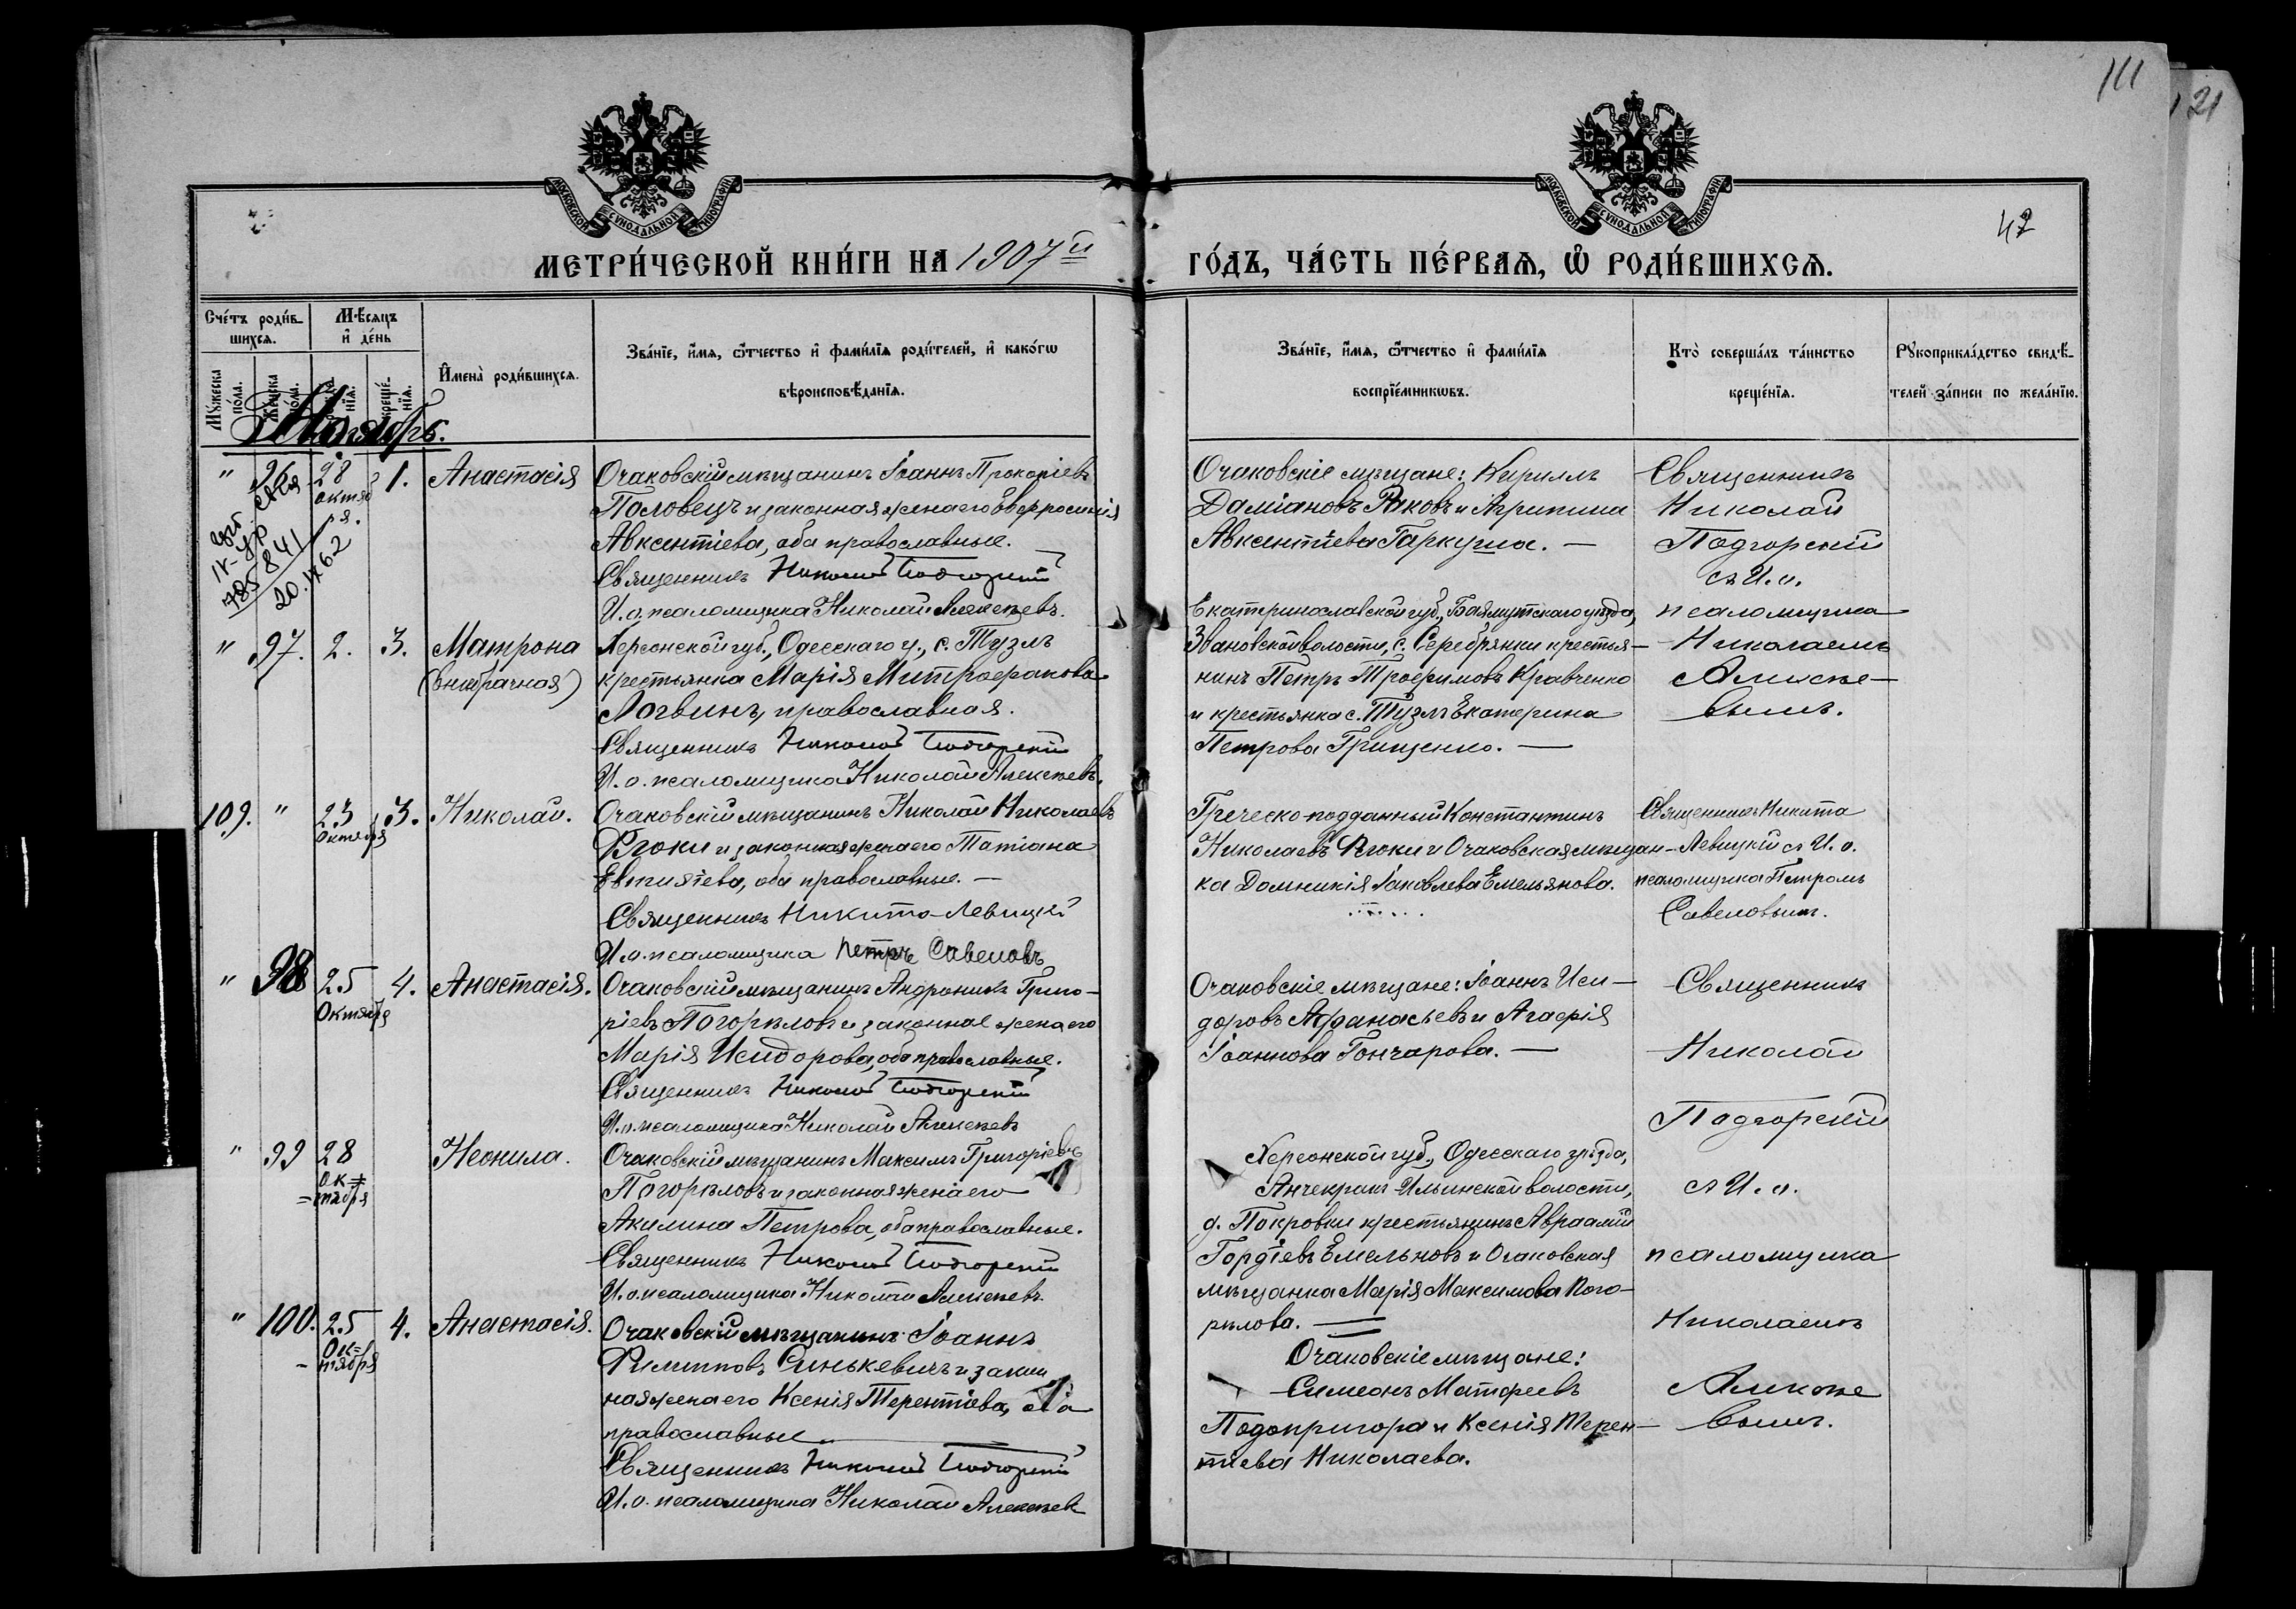 111
21
42
МОСКОВСКОЙ СѴНОДАЛЬНОЙ ТИПОГРАФІИ
МОСКОВСКОЙ СѴНОДАЛЬНОЙ ТИПОГРАФІИ
МЕТРИ́ЧЕСКОЙ КНИ́ГИ НА 1907й
ГО́ДЪ, ЧА́СТЬ ПЕ́РВАѦ, Ѡ РОДИ́ВШИХСѦ.
Сче́тъ роди́в-
шихсѧ.
Мѣ́сѧцъ
и҆ де́нь
Мꙋ́жеска по́ла.
Же́нска по́ла.
креще́-
нїѧ.
И҆мена̀ роди́вшихсѧ.
Зва́нїе, и҆́мѧ, ѻ҆́тчество и҆ фами́лїѧ роди́телей, и҆ како́гѡ
вѣроисповѣ́данїѧ.
Зва́нїе, и҆́мѧ, ѻ҆́тчество и҆ фами́лїѧ
воспрїе́мникѡвъ.
Кто̀ соверша́лъ та́инство
креще́нїѧ.
Рꙋкоприкла́дство свидѣ́-
телей за́писи по жела́нїю.
Ноябрь.
" 96. 28 октяб ря. 1. Анастасія
Очаковскій мѣщанинъ Іоаннъ Прокопіевъ
Пословецъ и законная жена его Ефросинія
Авксентіева, оба православные.
Священникъ Николай Подгорскій
И. о. псаломщика Николай Алексѣевъ.
Очаковскіе мѣщане: Кириллъ
Даміановъ Яковъ и Агрипина
Авксентіева Гаркуша. —
Священникъ
Николай
Подгорскій
съ И. о.
псаломщика
Николаемъ
Алексѣе-
вымъ.
" 97. 2. 3. Матрона
(внебрачная)
Херсонской губ., Одесскаго у., с. Тузлъ
крестьянка Марія Митрофанова
Логвинъ, православная.
Священникъ Николай Подгорскій
И. о. псаломщика Николай Алексѣевъ.
Екатеринославской губ., Бахмутскаго уѣзда,
Звановской волости, с. Серебрянки крестья-
нинъ Петръ Трофимовъ Кравченко
и крестьянка с. Тузлъ Екатерина
Петрова Грищенко. —
109. " 23 октября 3. Николай.
Очаковскій мѣщанинъ Николай Николаевъ
и законная жена его Татіана
оба православные. —
Священникъ Никита Левицкій
И. о. псаломщика Петръ Савеловъ
Греческо-подданный Константинъ
Николаевъ и Очаковская мѣщан-
ка Домникія Іаковлева Емельянова.
Священникъ Никита
Левицкій съ И. о.
псаломщика Петромъ
Савеловымъ.
" 98 25 Октября 4. Анастасія.
Очаковскій мѣщанинъ Андроникъ Григо-
ріевъ Погорѣловъ и законная жена его
Марія Исидорова, оба православные.
Священникъ Николай Подгорскій
И. о. псаломщика Николай Алексѣевъ
Очаковскіе мѣщане: Іоаннъ Иси-
доровъ Афанасьевъ и Агафія
Іоаннова Гончарова. —
Священникъ
Николай
Подгорскій
съ И. о.
псаломщика
Николаемъ
Алексѣе
вымъ.
" 99 28 Ок=
=тября Неонила.
Очаковскій мѣщанинъ Максимъ Григоріевъ
Погорѣловъ и законная жена его
Акилина Петрова, оба православные.
Священникъ Николай Подгорскій
И. о. псаломщика Николай Алексѣевъ.
Херсонской губ., Одесскаго уѣзда,
Анчекракъ-Ильинской волости,
д. Покровки крестьянинъ Авраамій
Гордіевъ Емельновъ и Очаковская
мѣщанка Марія Максимова Пого-
рѣлова. —
" 100. 25 Ок=
-тября 4. Анастасія.
Очаковскій мѣщанинъ Іоаннъ
Филипповъ Синькевичъ и закон
ная жена его Ксенія Терентіева, оба
православные
Священникъ Николай Подгорскій
И. о. псаломщика Николай Алексѣевъ
Очаковскіе мѣщане:
Симеонъ Матфеевъ
Подопригора и Ксенія Терен-
тіева Николаева.